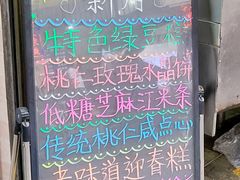 特色绿豆糕
桃仁玫瑰水晶饼
低糖芝麻江米条
传统桃仁咸点心
老味道迎春糕